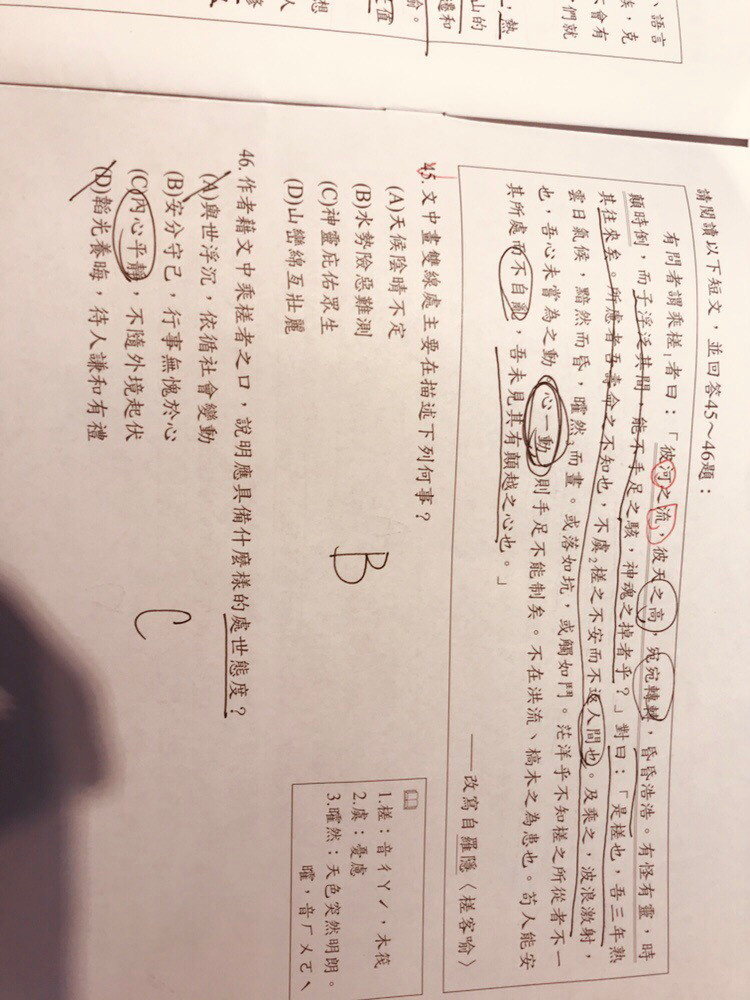 、語言
族，克
不會有
們就
：熱
山的
邊和
喻。
值
想
人
修
請閱讀以下短文，並回答45～46題：
有問者謂乘槎1者曰：「彼河之流，彼天之高，宛宛轉轉，昏昏浩浩。有怪有靈，時
顛時倒，而子浮泛其間，能不手足之駭，神魂之掉者乎？」對曰：「是槎也，吾三年熟
其往來矣。所慮者吾壽命之不知也，不虞2槎之不安而不返人間也。及乘之，波浪激射，
雲日氣候，黯然而昏，曜然3而晝。或落如坑，或觸如鬥。茫洋乎不知槎之所從者不一
也，吾心未嘗為之動，心一動，則手足不能制矣。不在洪流、槁木之為患也。苟人能安
其所處而不自亂，吾未見其有顛越之心也。」
——改寫自羅隱〈槎客喻〉
1.槎：音ㄔㄚˊ，木筏
2.虞：憂慮
3.曜然：天色突然明朗。
曜，音ㄏㄨㄛˋ
45.文中畫雙線處主要在描述下列何事？
B
(A)天候陰晴不定
(B)水勢險惡難測
(C)神靈庇佑眾生
(D)山巒綿亙壯麗
46.作者藉文中乘槎者之口，說明應具備什麼樣的處世態度？
C
(A)與世浮沉，依循社會變動
(B)安分守己，行事無愧於心
(C)內心平靜，不隨外境起伏
(D)韜光養晦，待人謙和有禮